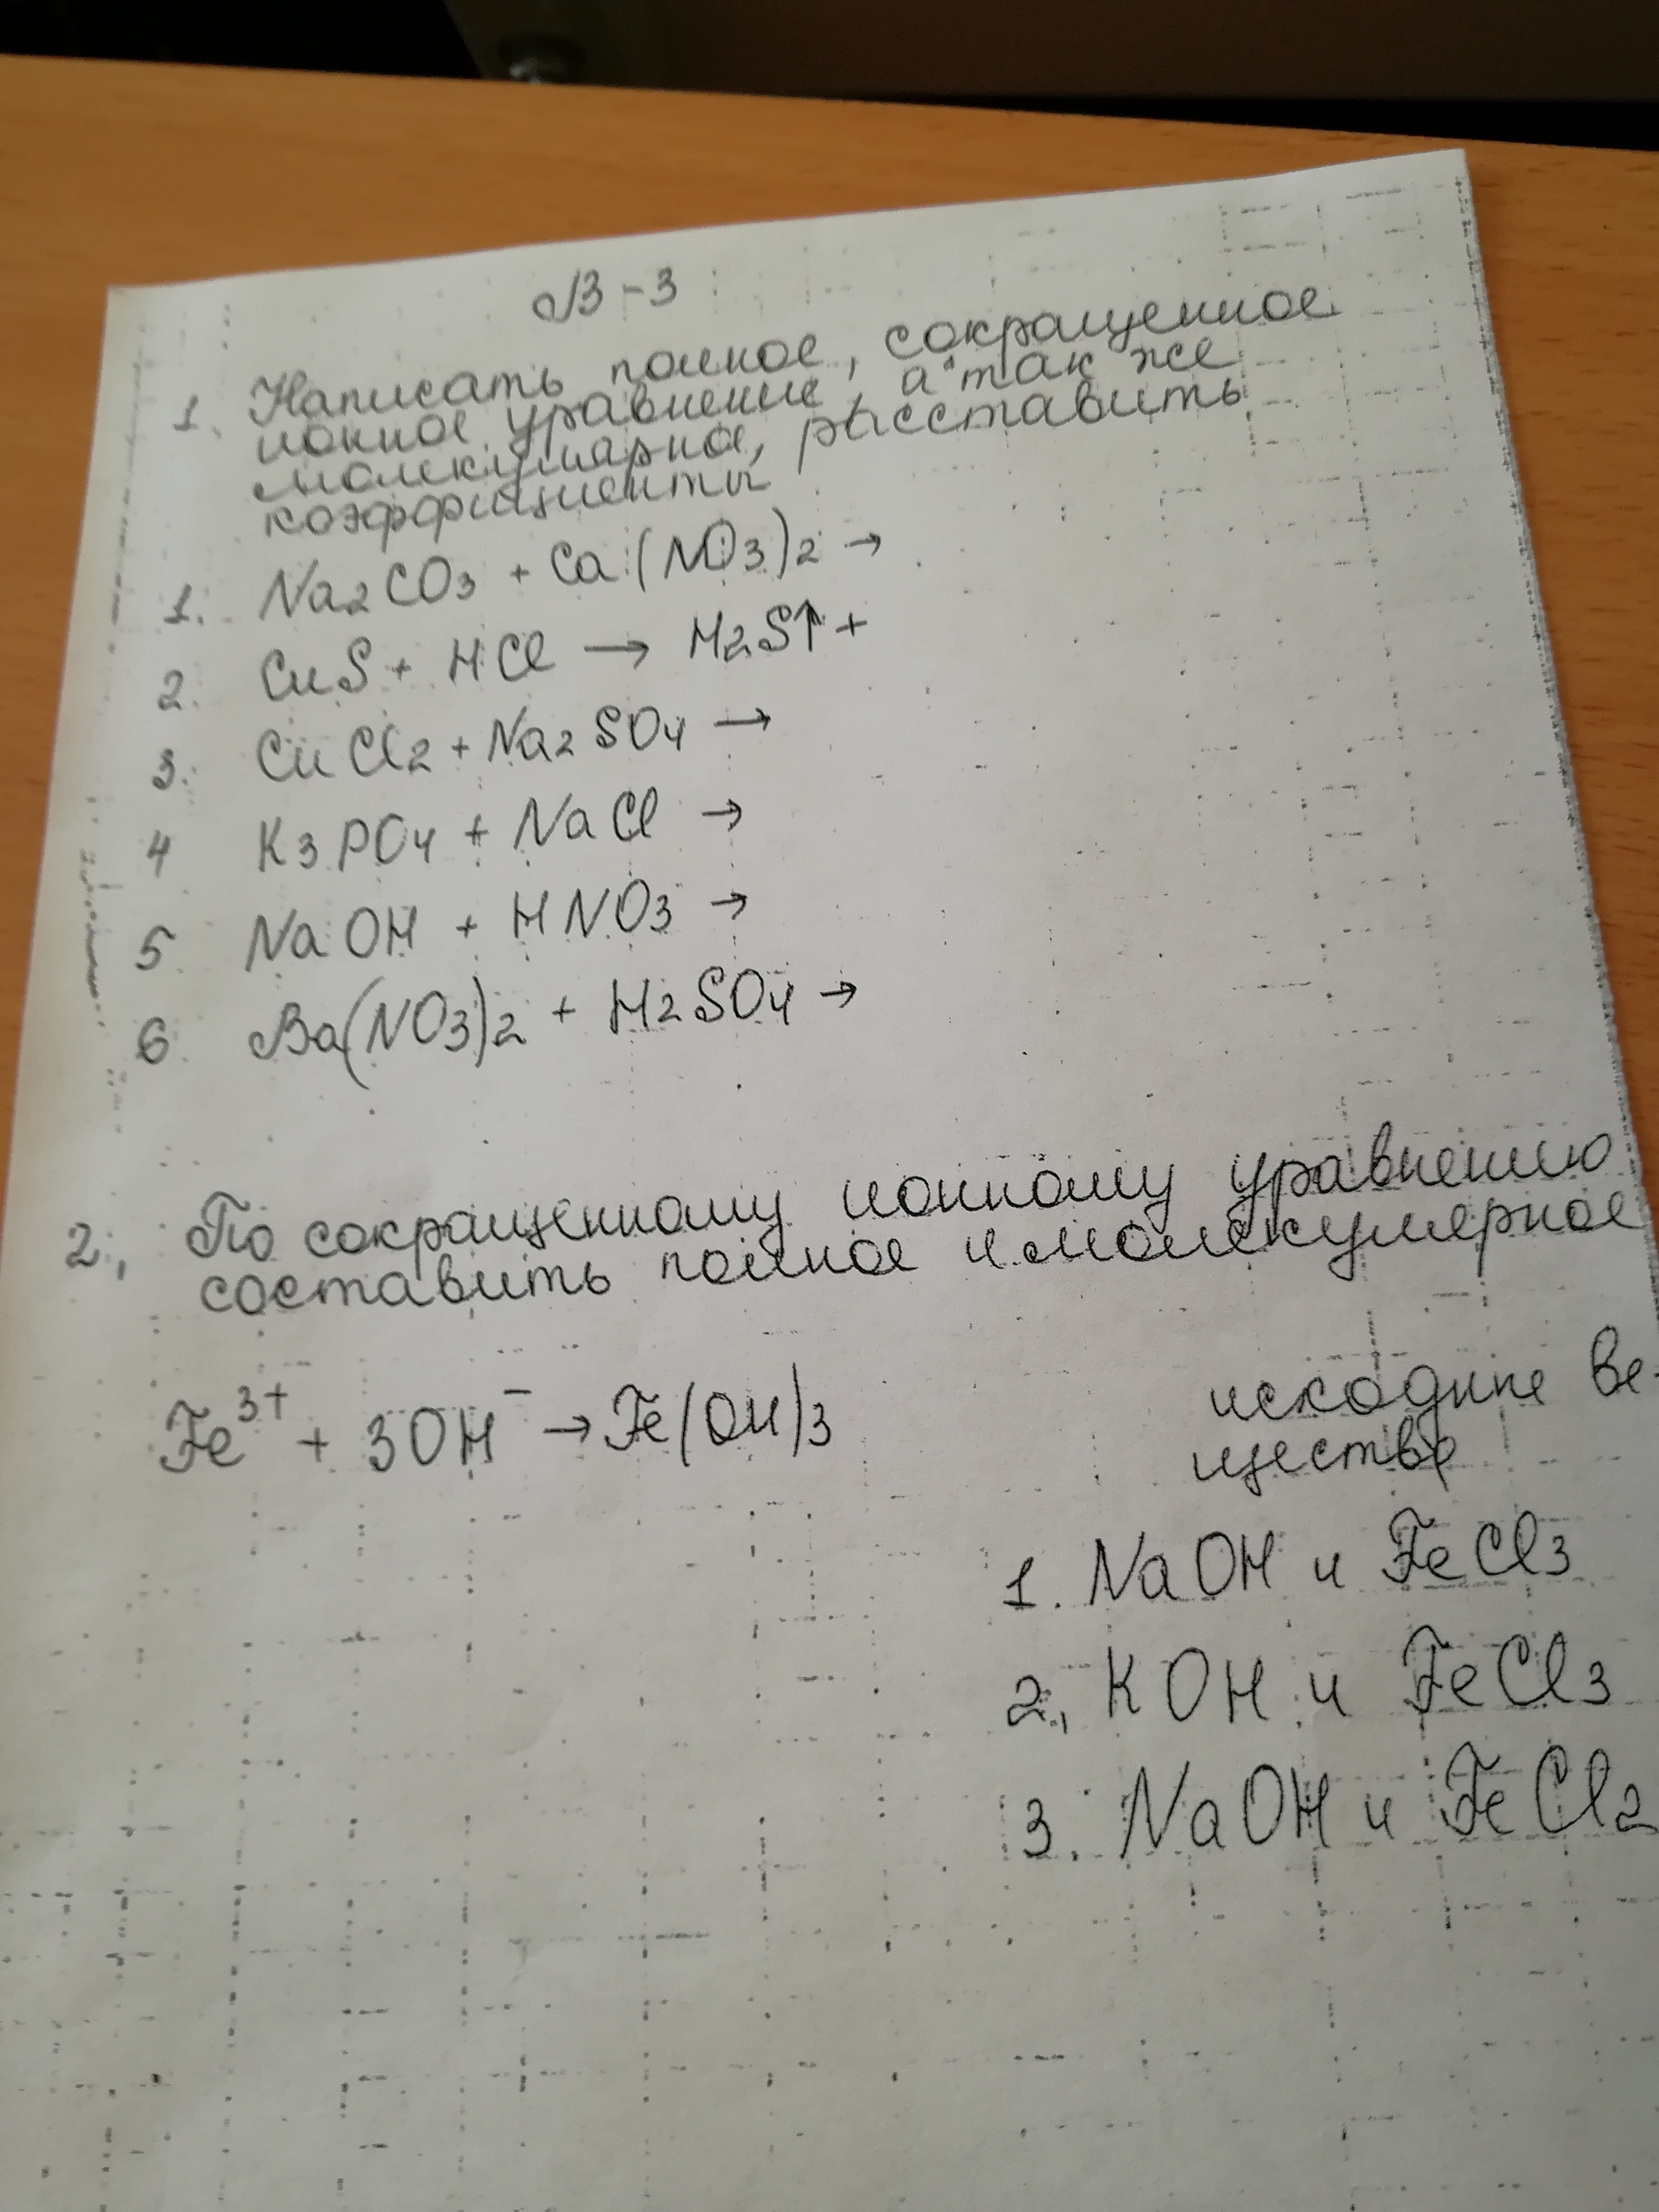 В-3
1. Написать полное, сокращенное
ионное уравнение, а так же
молекулярное, расставить
коэффициенты
1. Na2CO3 + Ca(NO3)2 →
2. CuS + HCl → H2S↑ +
3. CuCl2 + Na2SO4 →
4 K3PO4 + NaCl →
5. NaOH + HNO3 →
6 Ba(NO3)2 + H2SO4 →
2. По сокращенному ионному уравнению
составить полное и молекулярное
Fe3+ + 3OH- → Fe(OH)3
исходные ве-
щества
1. NaOH и FeCl3
2. KOH и FeCl3
3. NaOH и FeCl2